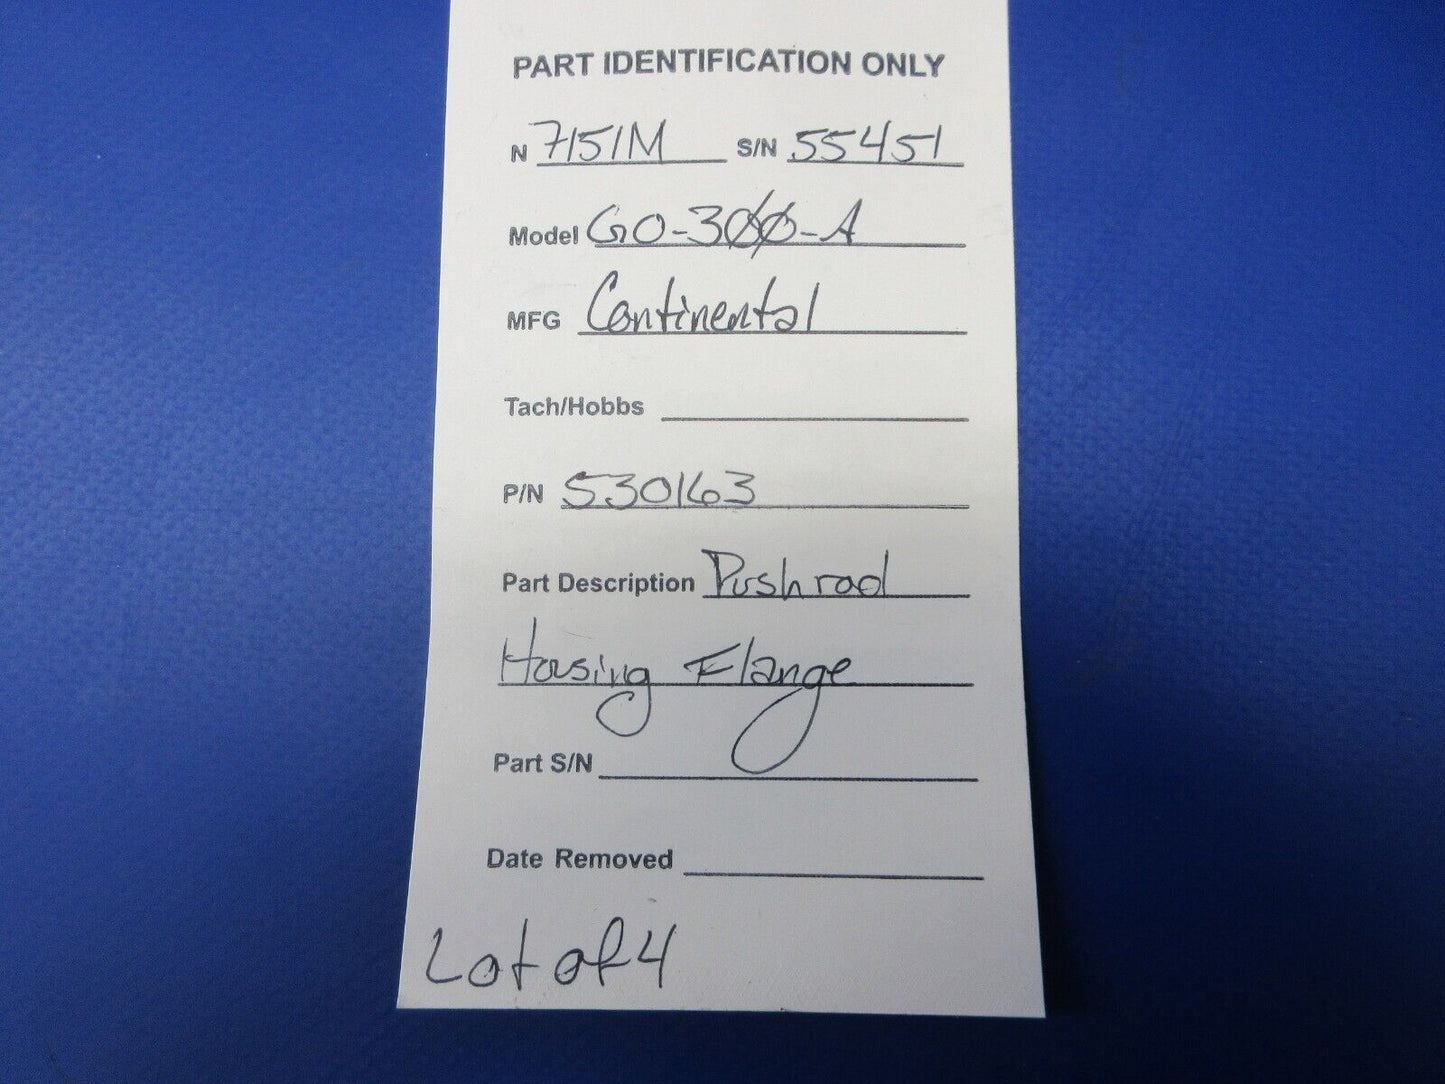 PART IDENTIFICATION ONLY
N 7151M S/N 55451
Model GO-300-A
MFG Continental
Tach/Hobbs
P/N 530163
Part Description Push rod
Housing Flange
Part S/N
Date Removed
Lot of 4